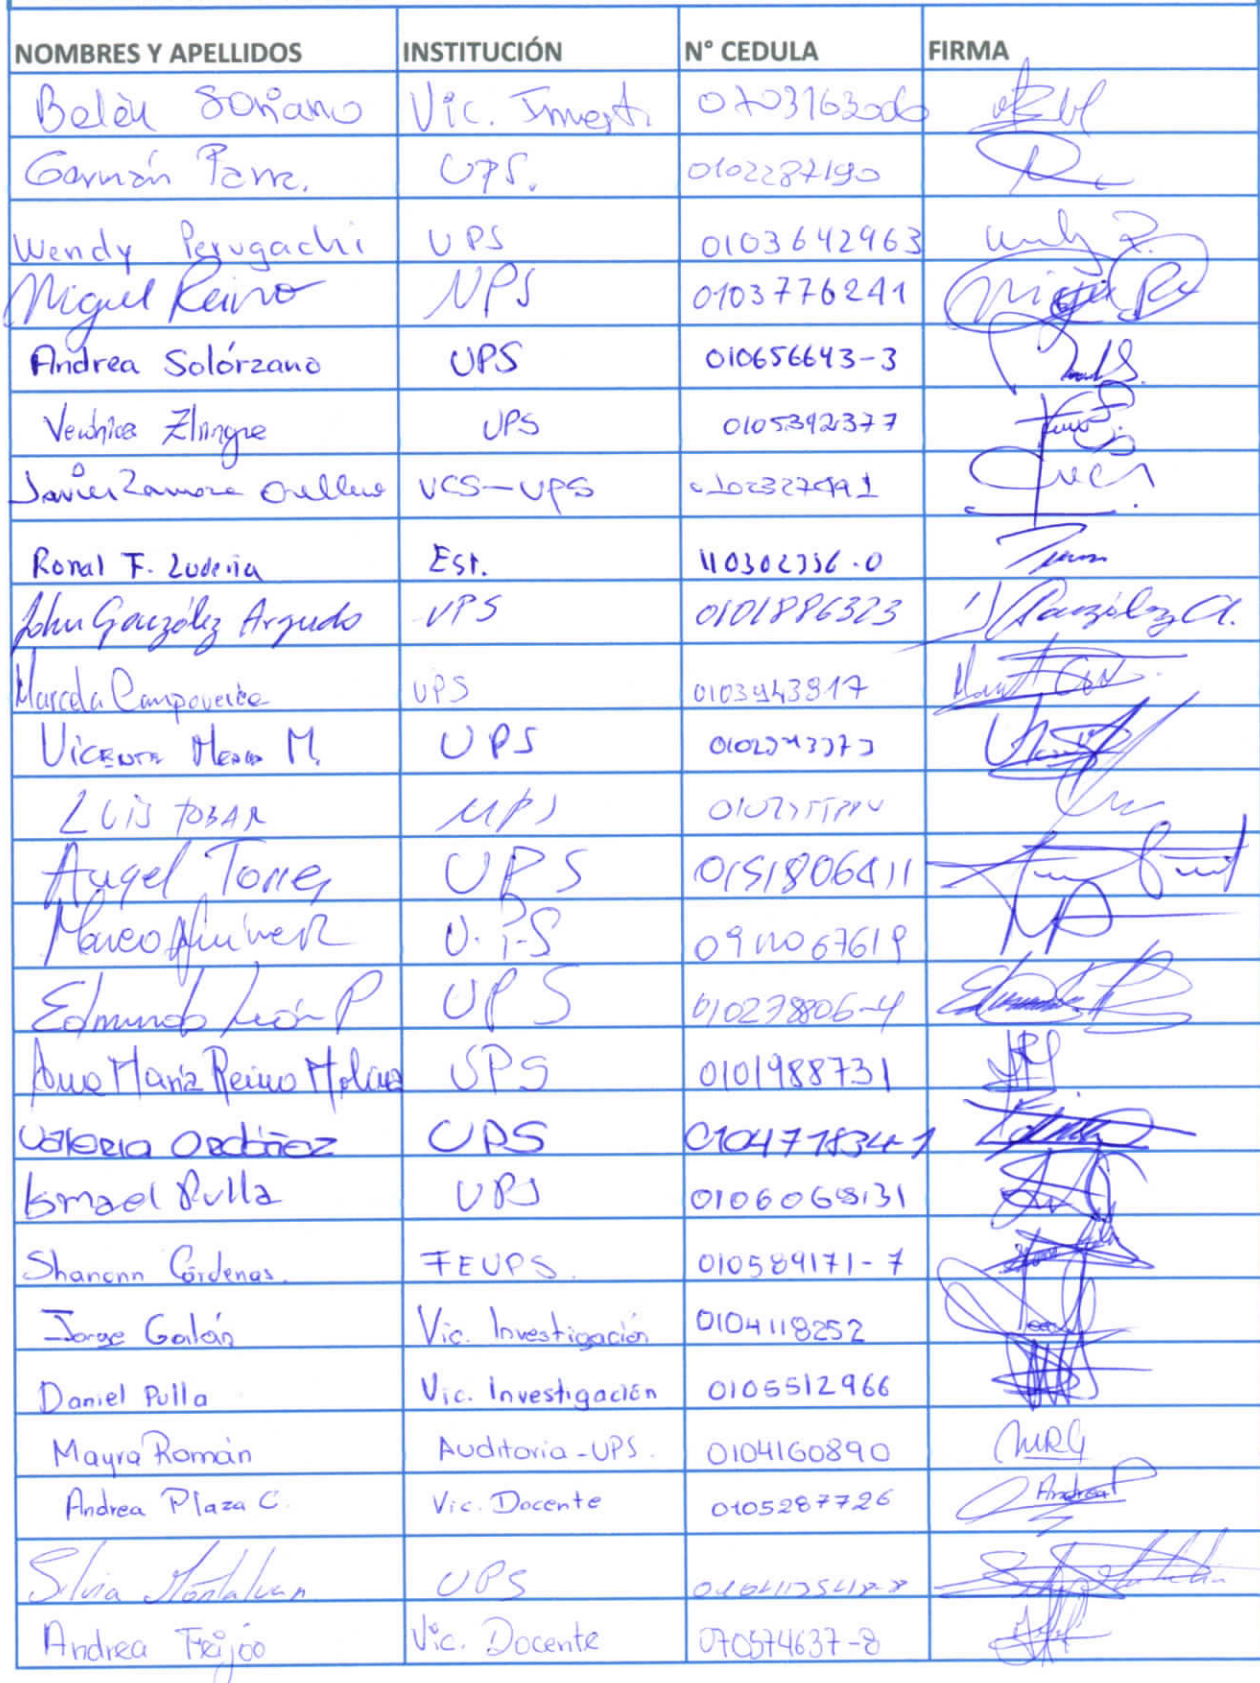 NOMBRES Y APELLIDOS INSTITUCIÓN N° CEDULA FIRMA
Belén Soriano Vic. Investi.
Germán Parra. UPS. 0102287190
Wendy Perugachi UPS 0103642963
Miguel Reino UPS 0103776241
Andrea Solórzano UPS 010656643-3
Verónica Zhingre UPS 0105392377
Javier Zamora Orellana VCS-UPS
Ronal F. Ludeña Est. 110302336-0
John González Argudo UPS 0101886323 J González A.
Marcela Campoverde UPS 0103943817
Vicente M. UPS
LUIS TOBAR UPS
Angel Torres UPS
Marco UPS
Edmundo León P UPS 010278806-4
Ana María Reino Molina UPS 0101988731
Valeria Ordóñez UPS 010477834-1
Ismael Pulla UPS 0106068131
Shanonn Córdenas. FEUPS. 010589171-7
Jorge Galán Vic. Investigación 0104118252
Daniel Pulla Vic. Investigación 0105512966
Mayra Román Auditoria-UPS. 0104160890 MRG
Andrea Plaza C. Vic. Docente 0105287726 AndreaP
Silvia Montalvan UPS
Andrea Feijóo Vic. Docente 070574637-8